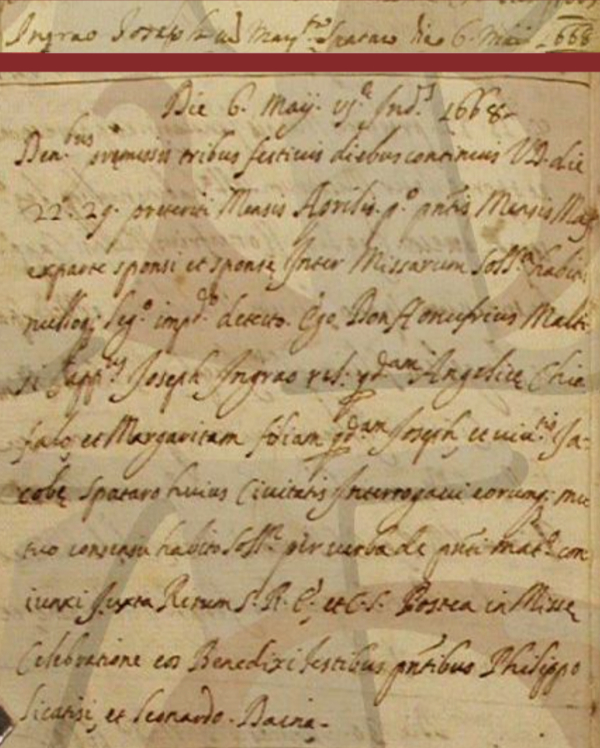 Ingrao Joseph cu Marg.ta Spataro die 6. Maii 1668
Die 6. Maij. VJ.e Ind.s 1668.
Den.bus premissis tribus festivis diebus continuis VD. die
22. 29. preteriti Mensis Aprilis. p.o pntis Mensis May
ex parte sponsi et sponse Inter Missarum Soll.a habitis
nulloq; leg.o imp.to detecto. Ego Don Honufrius Malti
si Capp.s Joseph Ingrao rel. qd.am Angelice Chia
falo et Margaritam filiam qd.am Joseph, et viven.tis Ja=
cobe Spataro huius Civitatis Interrogavi eorumq; mu
tuo consensu habito Soll.r per verba de pnti mat.o con
iunxi Juxta Ritum S. R. E. et C. S. Postea in Misse
Celebratione eos Benedixi testibus pntibus Philippo
et Leonardo. Baina.